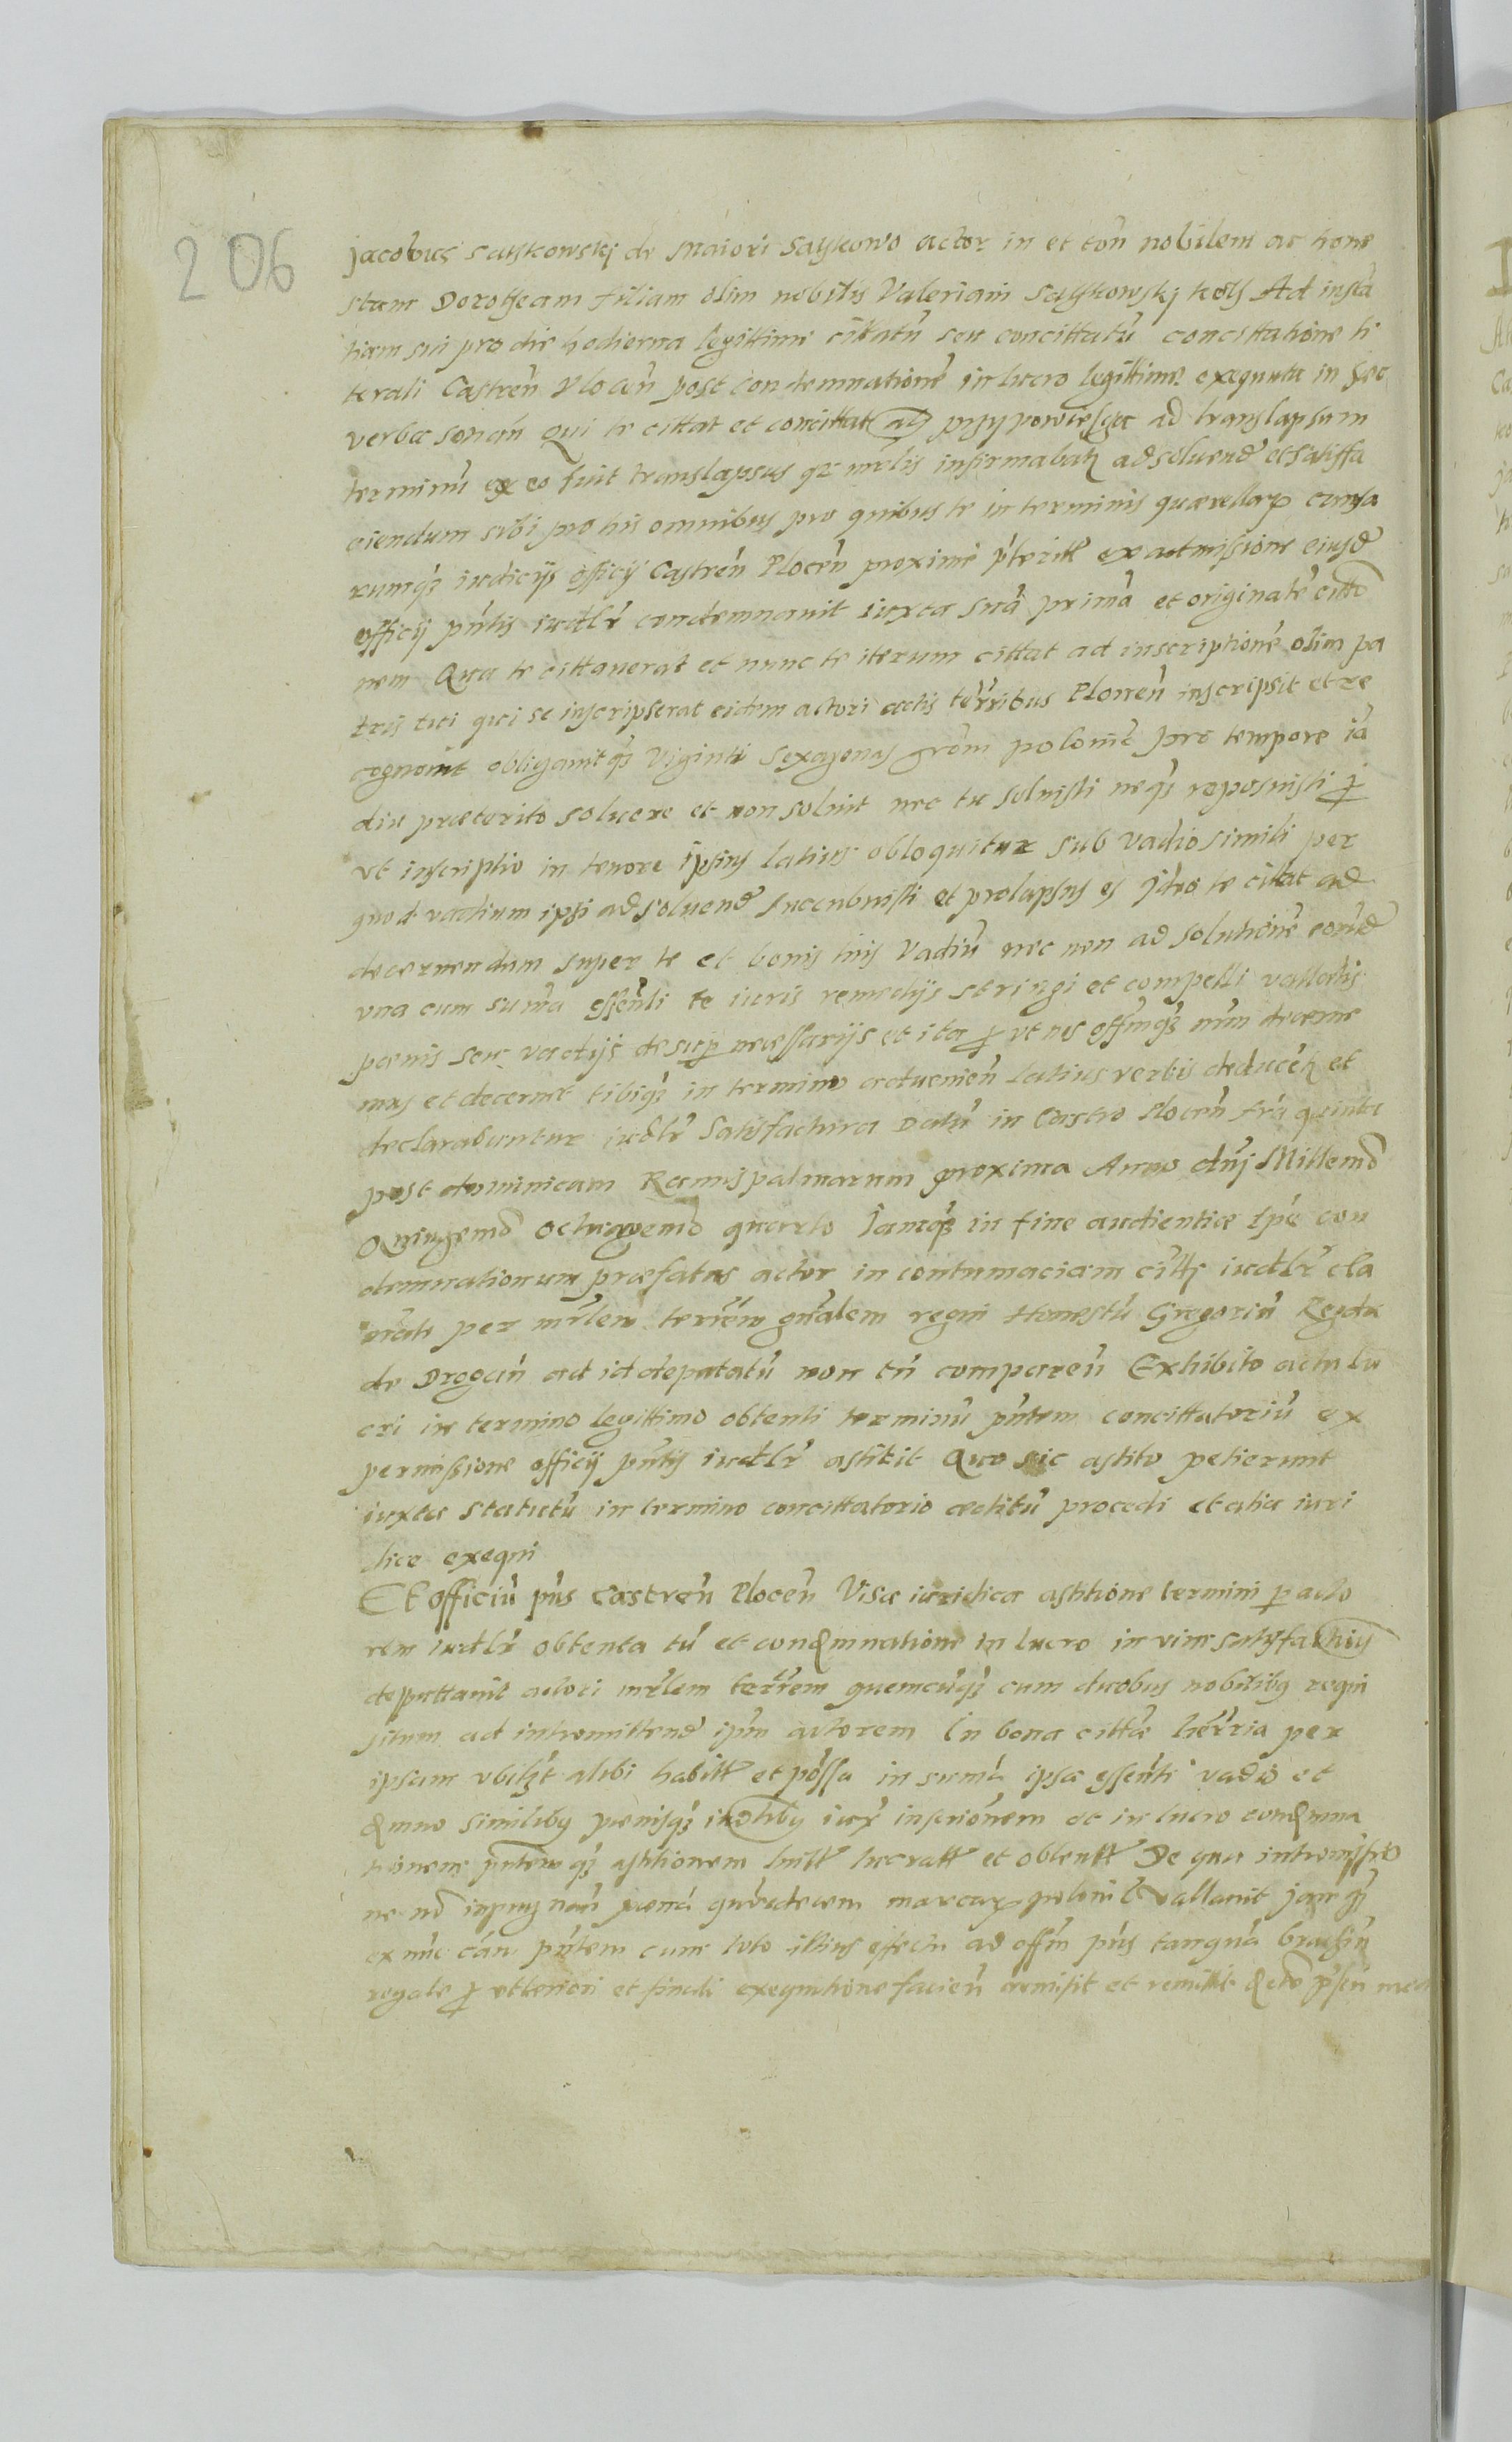 206
Jacobus Saykowskj de Maiori Saykowo actor in et con nobilem ac hone
stam Dorotheam filiam olim nobilis Valeriani Saykowskj Ad insta
tiam sui pro die hodierna legittime cittatu seu concittatu concittatione li
terali Castren Plocen post condemnatione in lucro legittime exequuta in haec
verba sonan Qui te cittat et concittat al przypowiescza ad translapsum
terminu ex eo fuit translapsus qr mrlis infirmabatr ad soluend et satisfa
ciendum sibi pro his omnibus pro quibus te in terminis querellar causa
rumqz iudicijs officij Castren Plocen proxime pterit ex admissione eiusd
officij pntis iudlr condemnauit iuxta sua prima et originale citto
nem Qua te cittauerat et nunc te iterum cittat ad inscriptione olim pa
tris tui qui se inscripserat eidem actori actis terribus Plocen inscripsit et re
cognouit obligauitqz Viginti Sexagenas grom polonic pro tempore ia
diu praeterito soluere et non soluit nec tu soluisti neqz reposuisti p
vt inscriptio in tenore ipsius latius obloquitur sub vadio simili per
quod vadium ipsi ad soluend succubuisti et prolapsus es Ideo te citat ad
decernendum super te et bonis tuis Vadiu nec non ad solutione eorud
vna cum suma essenli te iuris remedijs stringi et compelli vallatis
poenis seu vadijs desup necessarijs et ita p vt nos offmqz nrm decerne
mus et decernet tibiqz in termino aduenien latius verbis deducetr et
declarabuntur iudlr satisfactura Datu in Castro Plocen fra quinta
post dominicam Ramispalmarum proxima Anno dnj Millemo
Quingemo octuagemo quarto Iamqz in fine audientiae tpe con
demnationum praefatus actor in contumaciam citte iudlr cla
mate per mrlem terrem gnralem regni Honestu Gregoriu
de Drogan ad id deputatu non tn comparen Exhibito actu lu
cri in termino legittimo obtenti terminu pntem concittatoriu ex
permissione officij pntis iudlr astitit Quo sic astito petierunt
iuxta statutu in termino concittatorio aeditu procedi et alia iuri
dice exequi
Et officiu pns Castren Plocen Visa iuridica astitione termini p acto
rem iudlr obtenta tu et condmnatione in lucro in vim satisfactionis
deputtauit actori mrlem terrem quemcuqz cum duobus nobilibg requi
situm ad intromittend ipm actorem In bona citte herria per
ipsam vbilzt alibi habitt et possa in suma ipsa essenti vadio et
dmno similibg poenisqz iudlibg iux inscrionem et in lucro condmna
tionem pntemqz astitionem luitt lucratt et obtentt De qua intromissio
ne no inpugnan poena quatuordecem marcar polonic vallauit jamqz
ex nuc can pntem cum toto illius effectu ad offm pns tanqua brachiu
regale p vlteriori et finali exequutione facien remisit et remittit dcto psen med